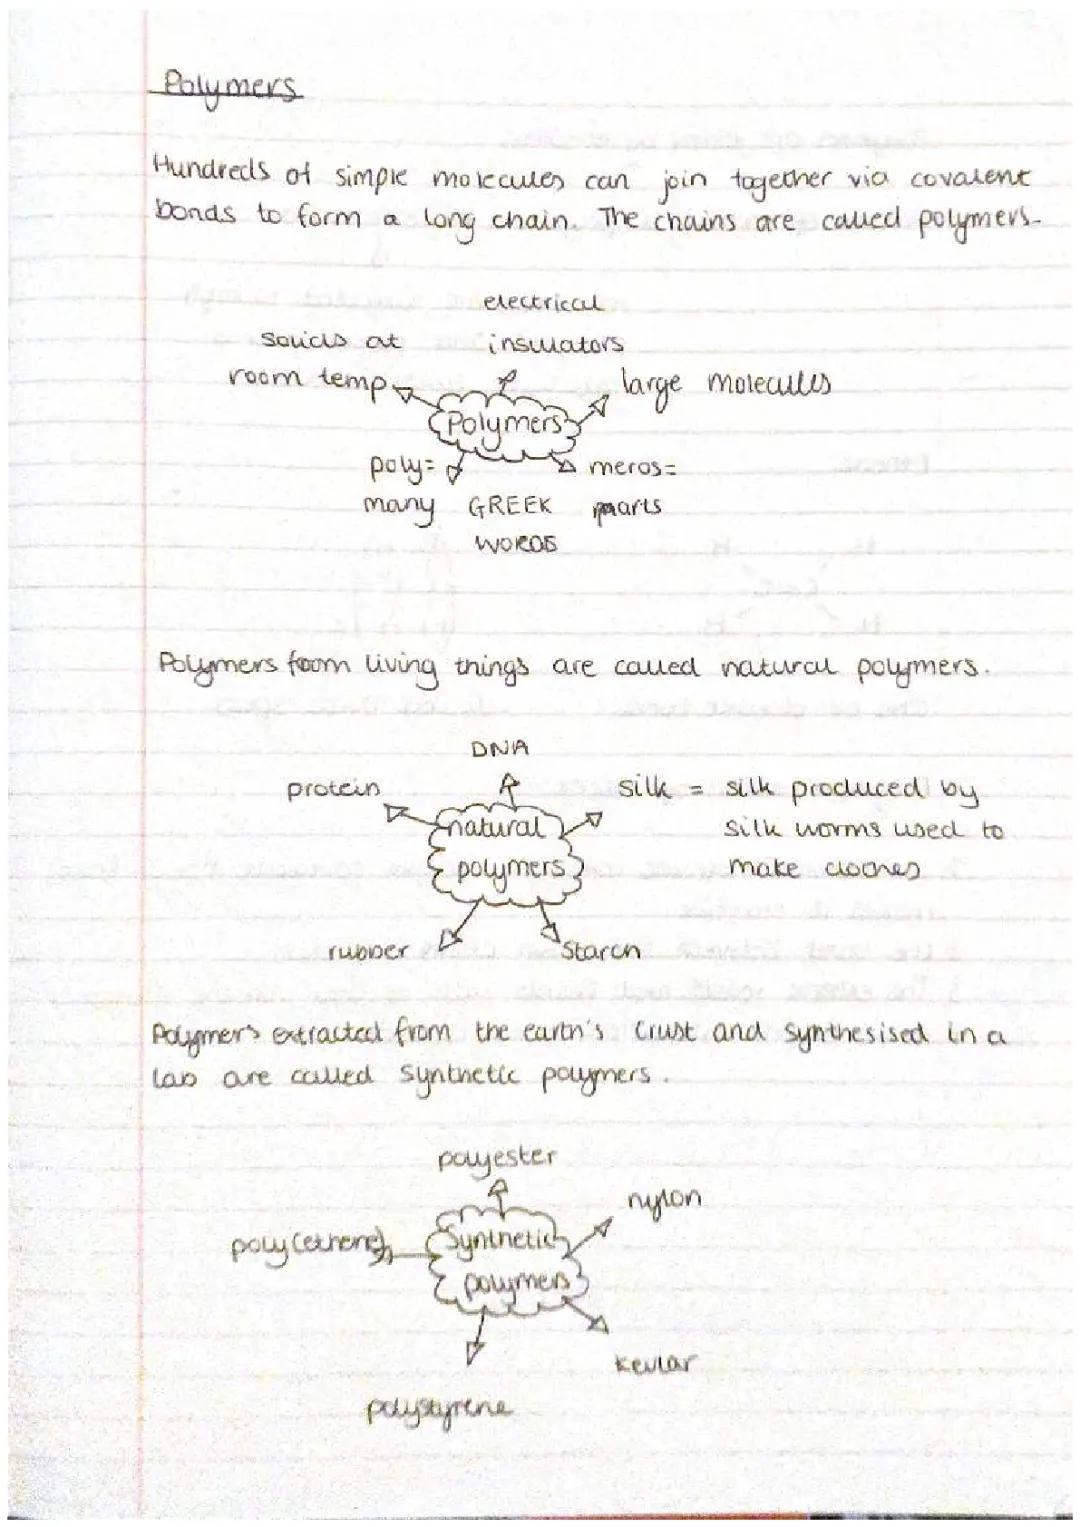 Polymers
Hundreds of simple molecules can join together via covalent
bonds to form a long chain. The chains are called polymers.
electrical
solids at insulators
room temp large molecules
Polymers
poly= meros=
many GREEK parts
WORDS
Polymers from living things are called natural polymers.
DNA
protein silk = silk produced by
natural silk worms used to
polymers make clothes
rubber Starch
Polymers extracted from the earth's crust and synthesised in a
lab are called synthetic polymers.
polyester
nylon
poly(ethene) Synthetic
polymers
kevlar
polystyrene